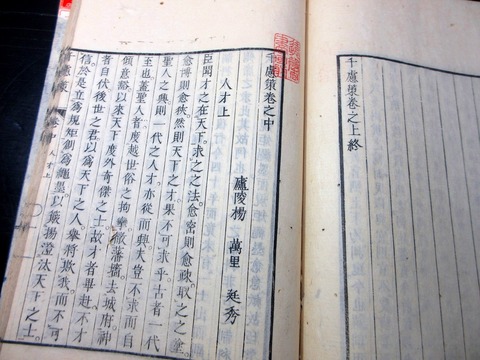 千慮策卷之上終
千慮策卷之中
人才上
廬陵楊 萬里 廷秀
臣聞才之在天下。求之之法。愈密則愈踈。取之之塗。
愈博則愈狹。然則天下之才。果不可求乎。古者一代
聖人之興。則一代之人才。亦從而興。大嘗不求而自
至也。蓋聖人者。度越世俗之拘攣。徹藩牆。去城府。神
傾意豁。以來天下度外奇傑之士。故才者畢赴。不才
者自伏。後世之君。以爲天下之人。舉將欺我。而不可
信。於是立爲規矩。創爲繩墨。以簸揚澄汰天下之士。
人才上